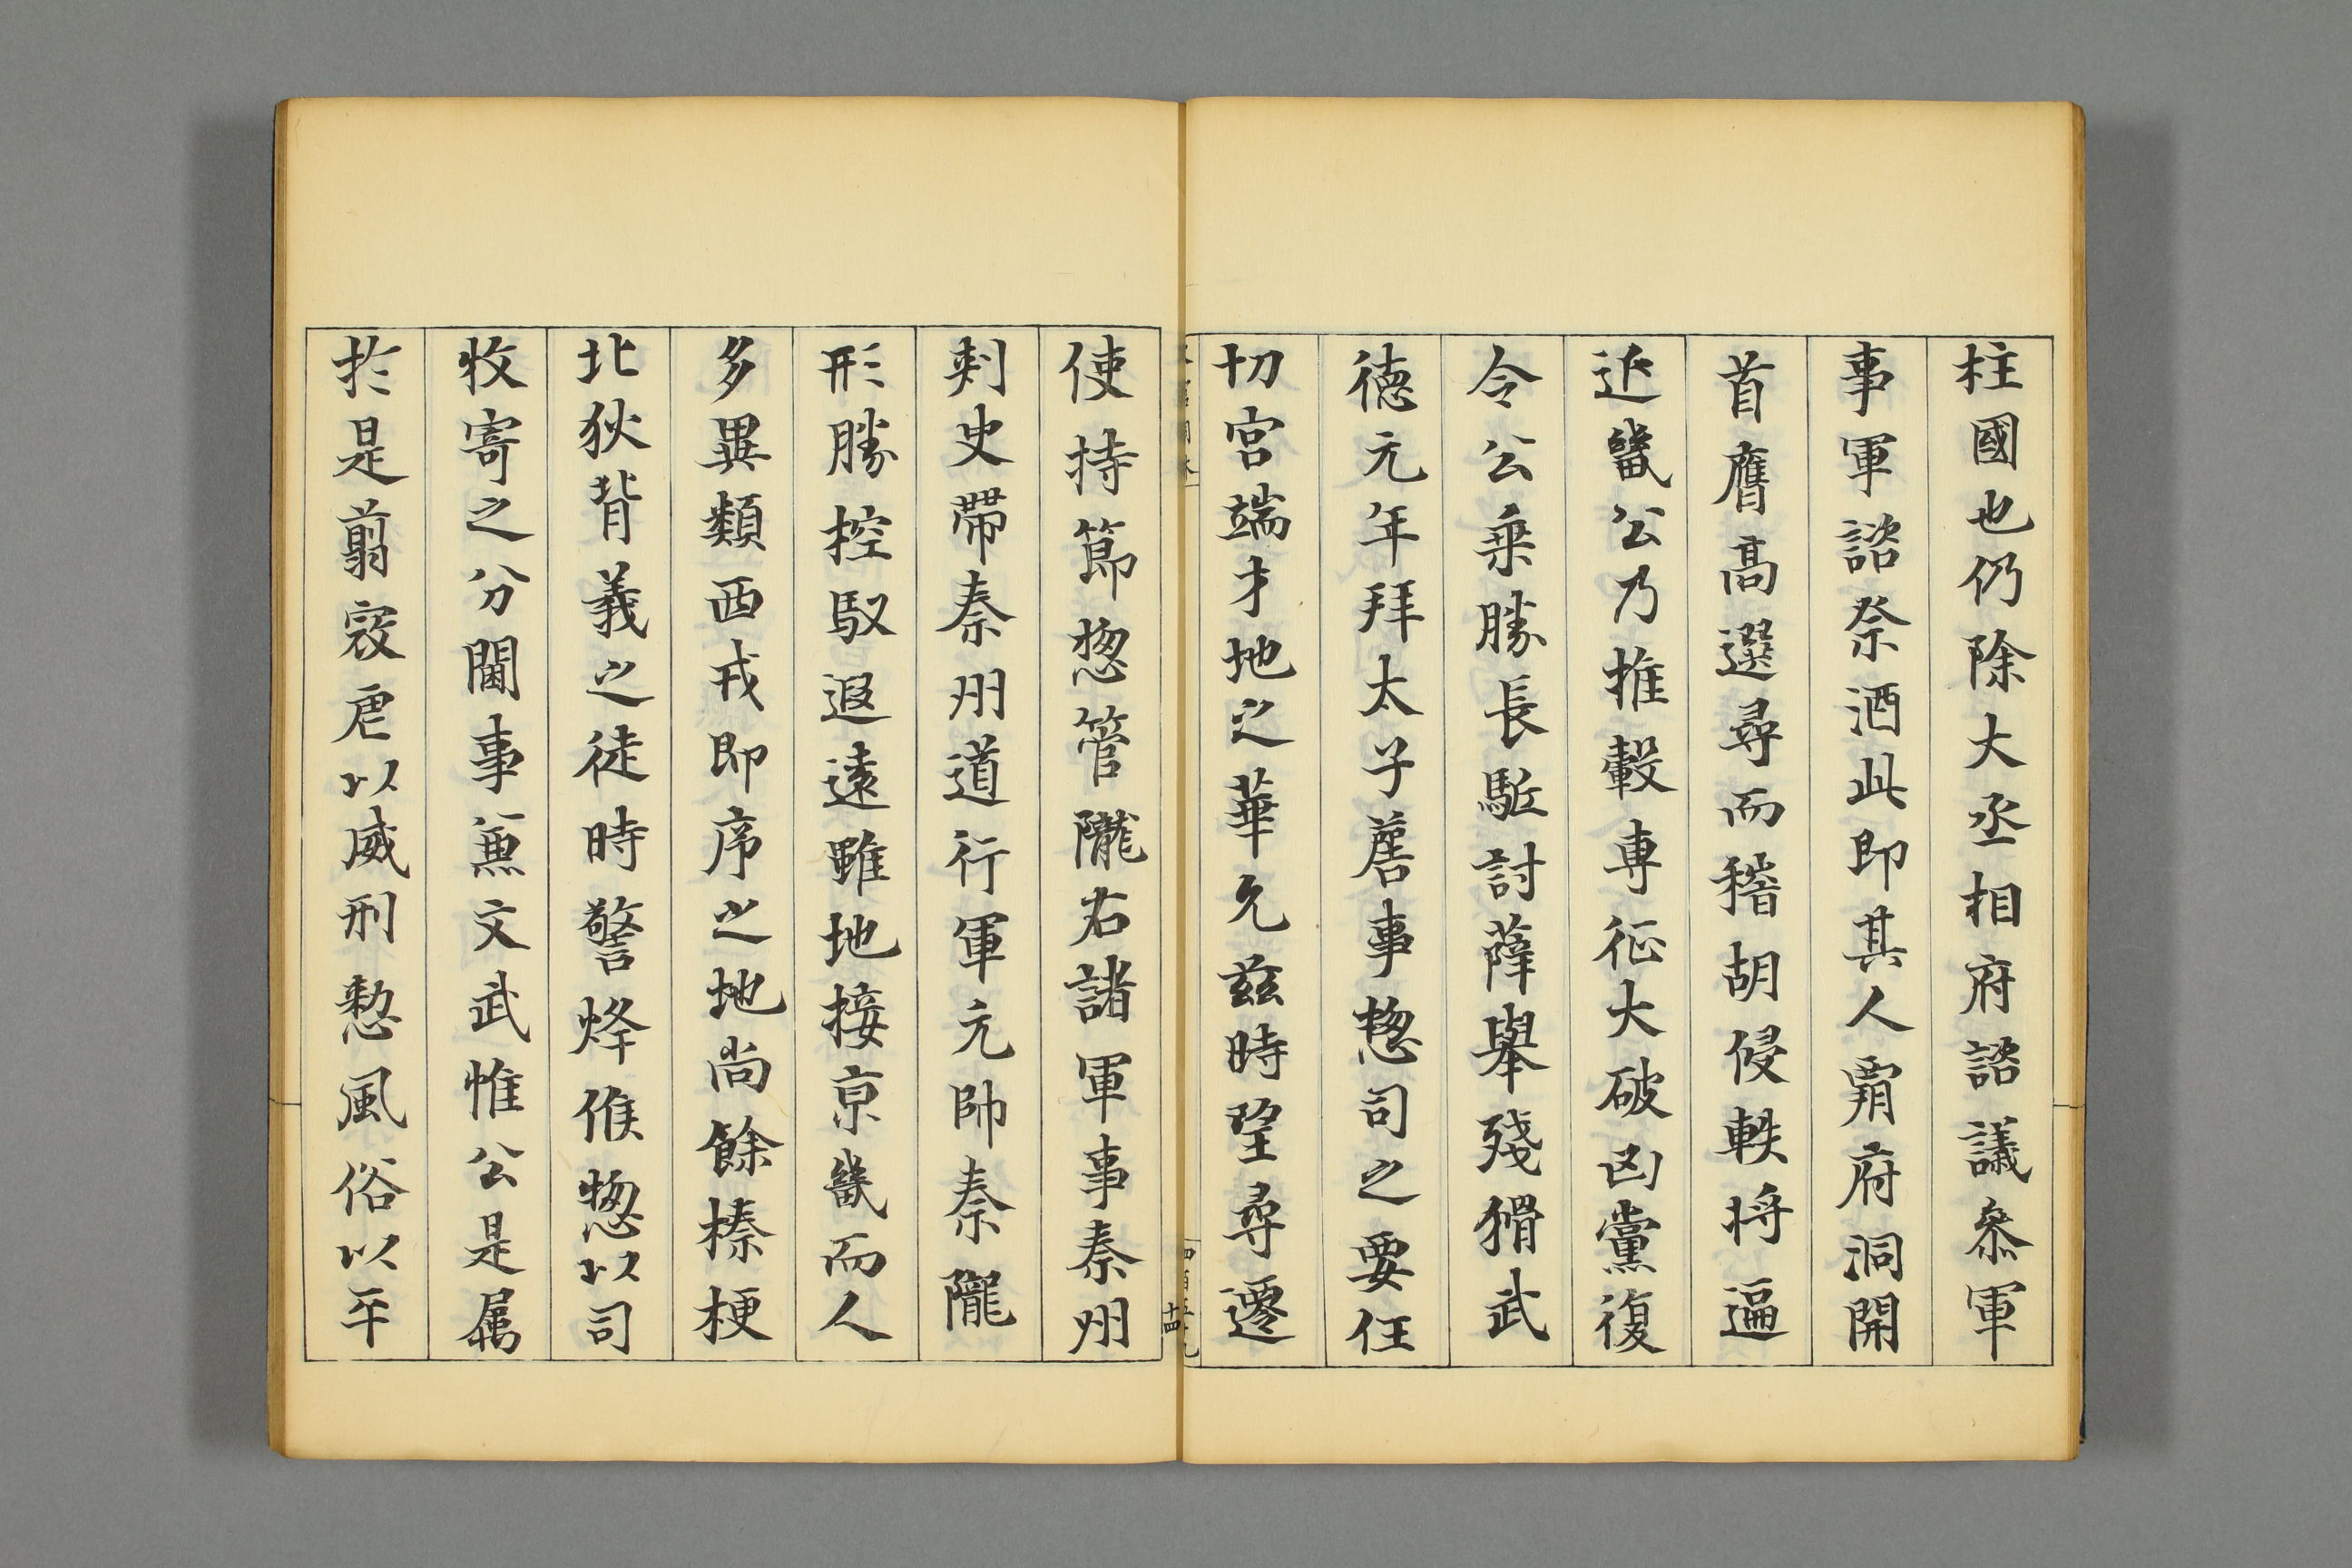 柱國也仍除大丞相府諮議叅軍
事軍諮祭酒此即其人霸府洞開
首膺髙選尋而稽胡侵軼将逼
近畿公乃推轂専征大破凶黨復
令公乗勝長駈討薛舉殘猾武
德元年拜太子詹事惣司之要任
切宮端才地之華允兹時望尋遷
使持節惣管隴右諸軍事秦州
刺史帶秦州道行軍元帥秦隴
形勝控馭遐遠雖地接京畿而人
多異類西戎即序之地尚餘榛梗
北狄背義之徒時警烽候惣以司
牧寄之分閫事兼文武惟公是属
扵是翦寇虐以威刑愸風俗以平